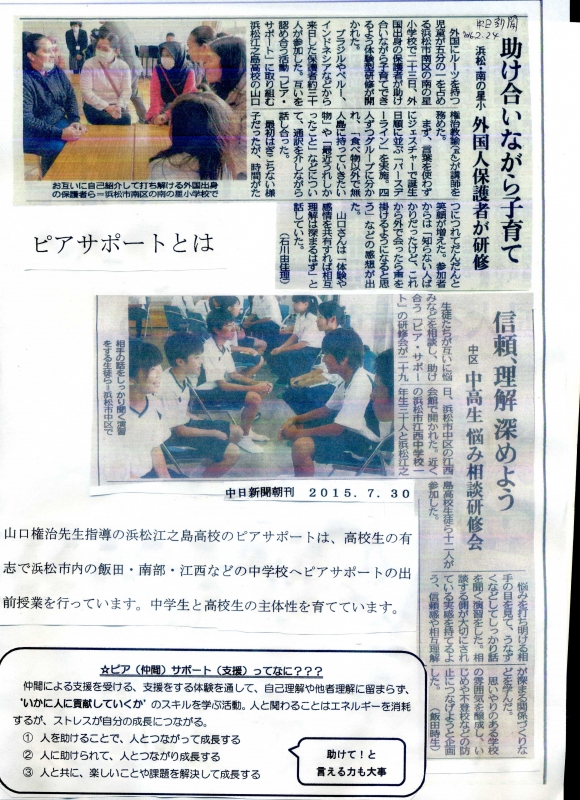 中日新聞
2016.2.24
助け合いながら子育て
浜松・南の星小 外国人保護者が研修
外国にルーツを持つ
児童が五分の一を占め
る浜松市南区の南の星
小学校で二十三日、外
国出身の保護者が助け
合いながら子育てでき
るよう体験型研修が開
かれた。
ブラジルやペルー、
インドネシアなどから
来日した保護者約三十
人が参加した。互いを
認め合う活動「ピア・
サポート」に取り組む
浜松江之島高校の山口
権治教諭(五六)が講師を
務めた。
まず、言葉を使わず
にジェスチャーで誕生
日順に並ぶ「バースデ
ーライン」を実施。四
人ずつグループに分か
れ、「食べ物以外で無
人島に持っていきたい
物」や「最近うれしか
ったこと」などについ
て、通訳を介しながら
話し合った。
最初はぎこちない様
子だったが、時間がた
つにつれてだんだんと
笑顔が増えた。参加者
からは「知らない人ば
かりだったけど、これ
から外で会ったら声を
掛けるようになると思
う」などの感想が出
た。
山口さんは「体験や
感情を共有すれば相互
理解は深まるはず」と
話していた。
(石川由佳理)
お互いに自己紹介して打ち解ける外国出身
の保護者ら=浜松市南区の南の星小学校で
ピアサポートとは
信頼、理解 深めよう
中区 中高生 悩み相談研修会
生徒たちが互いに悩
みなどを相談し、助け
合う「ピア・サポー
ト」の研修会が二十九
日、浜松市中区の江西
会館で開かれた。近く
の浜松市江西中学校一
年生三十人と浜松江之
島高校生徒ら十二人が
参加した。
悩みを打ち明ける相
手の目を見て、うなず
くなどしてしっかり話
を聞く演習をした。相
談する側が大切にされ
ている実感を持てるよ
う、信頼感や相互理解
が深まる関係づくりな
どを学んだ。
思いやりのある学校
の雰囲気を醸成し、い
じめや不登校などの防
止につなげようと企画
した。
(飯田時生)
相手の話をしっかり聞く演習
をする生徒ら=浜松市中区で
中日新聞朝刊 2015.7.30
山口権治先生指導の浜松江之島高校のピアサポートは、高校生の有
志で浜松市内の飯田・南部・江西などの中学校へピアサポートの出
前授業を行っています。中学生と高校生の主体性を育てています。
☆ピア(仲間)サポート(支援)ってなに???
仲間による支援を受ける、支援をする体験を通して、自己理解や他者理解に留まらず、
'いかに人に貢献していくか'のスキルを学ぶ活動。人と関わることはエネルギーを消耗
するが、ストレスが自分の成長につながる。
① 人を助けることで、人とつながって成長する
② 人に助けられて、人とつながり成長する
③ 人と共に、楽しいことや課題を解決して成長する
助けて!と
言える力も大事